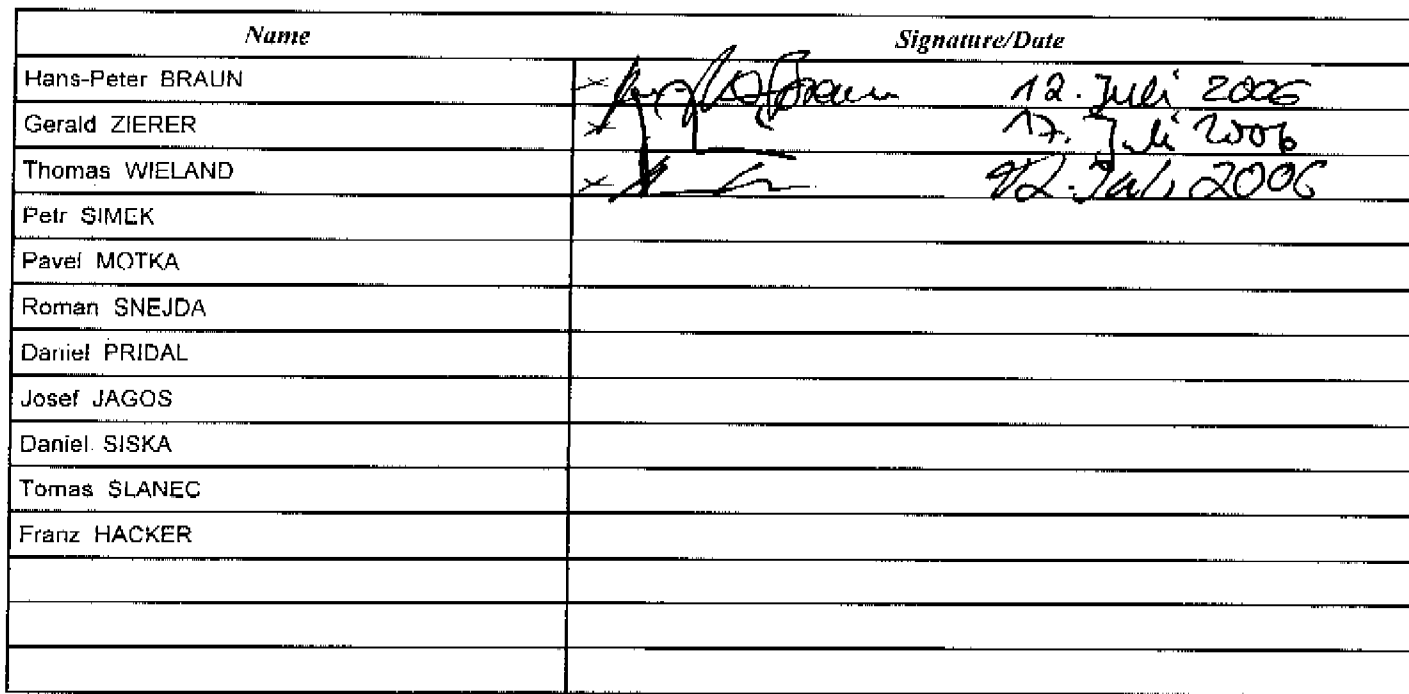 Name Signature/Date
Hans-Peter BRAUN × Braun 12. Juli 2006
Gerald ZIERER × 17. Juli 2006
Thomas WIELAND × 12. Juli 2006
Petr SIMEK
Pavel MOTKA
Roman SNEJDA
Daniel PRIDAL
Josef JAGOS
Daniel SISKA
Tomas SLANEC
Franz HACKER